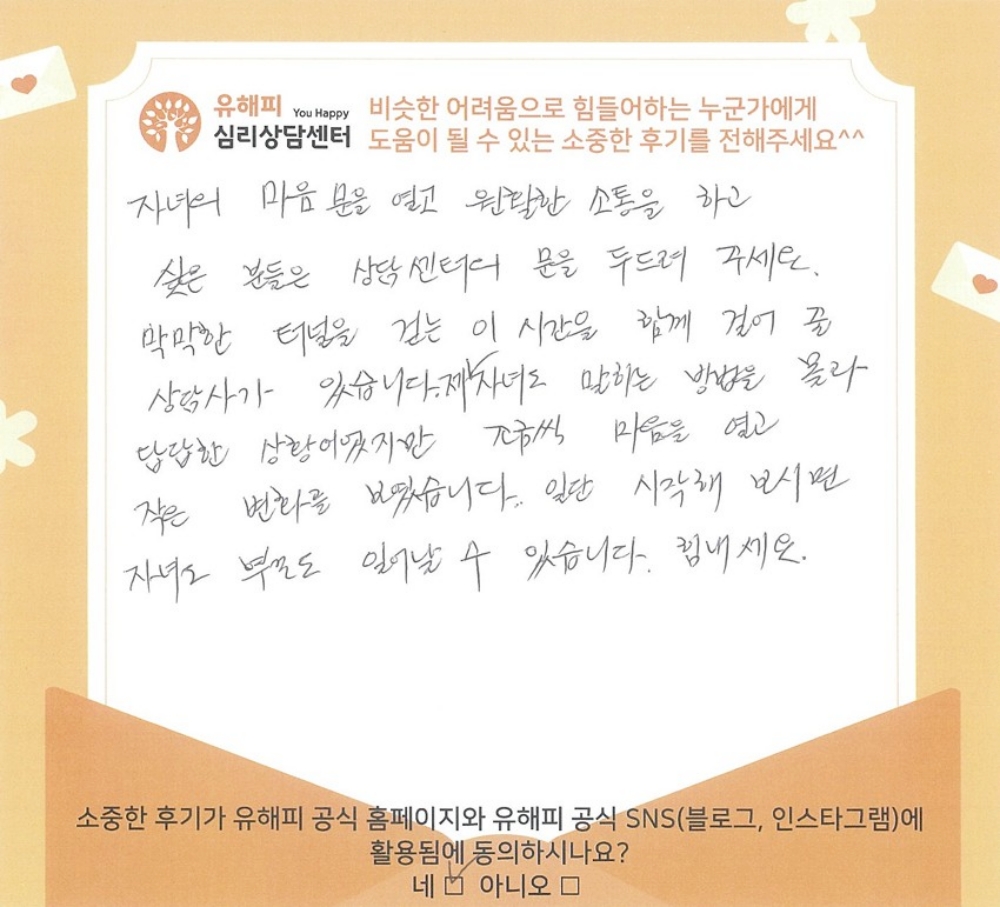 유해피 You Happy
심리상담센터
비슷한 어려움으로 힘들어하는 누군가에게
도움이 될 수 있는 소중한 후기를 전해주세요^^
자녀의 마음 문을 열고 원활한 소통을 하고
싶은 분들은 상담센터의 문을 두드려 주세요.
막막한 터널을 걷는 이 시간을 함께 걸어 줄
상담사가 있습니다. 제 자녀도 말하는 방법을 몰라
답답한 상황이었지만 조금씩 마음을 열고
작은 변화를 보였습니다. 일단 시작해 보시면
자녀도 부모도 일어날 수 있습니다. 힘내세요.
소중한 후기가 유해피 공식 홈페이지와 유해피 공식 SNS(블로그, 인스타그램)에
활용됨에 동의하시나요?
네 ☑ 아니오 □